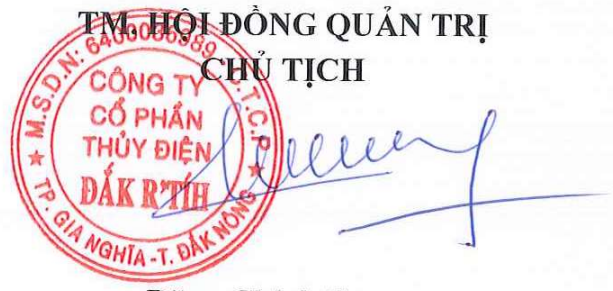 TM. HỘI ĐỒNG QUẢN TRỊ
CHỦ TỊCH
M.S.D.N: C.T.C.P
CÔNG TY
CỔ PHẦN
THỦY ĐIỆN
ĐẮK R'TÍH
TP. GIA NGHĨA - T. ĐẮK NÔNG